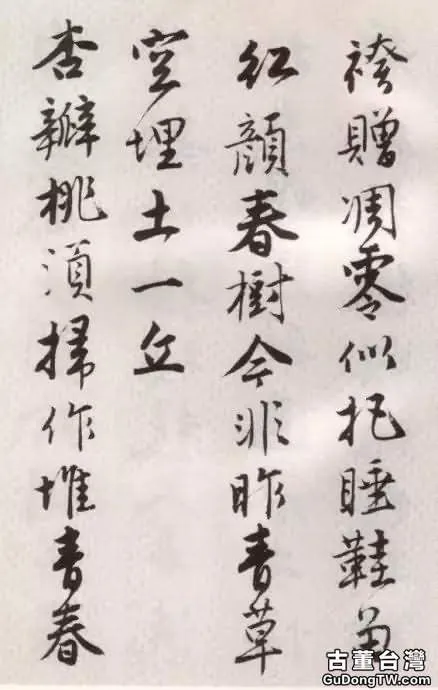 袴贈凋零似把睡鞋留
紅顔春樹今非昨青草
空埋土一丘
杏瓣桃須掃作堆青春
古董台灣
GuDongTW.com